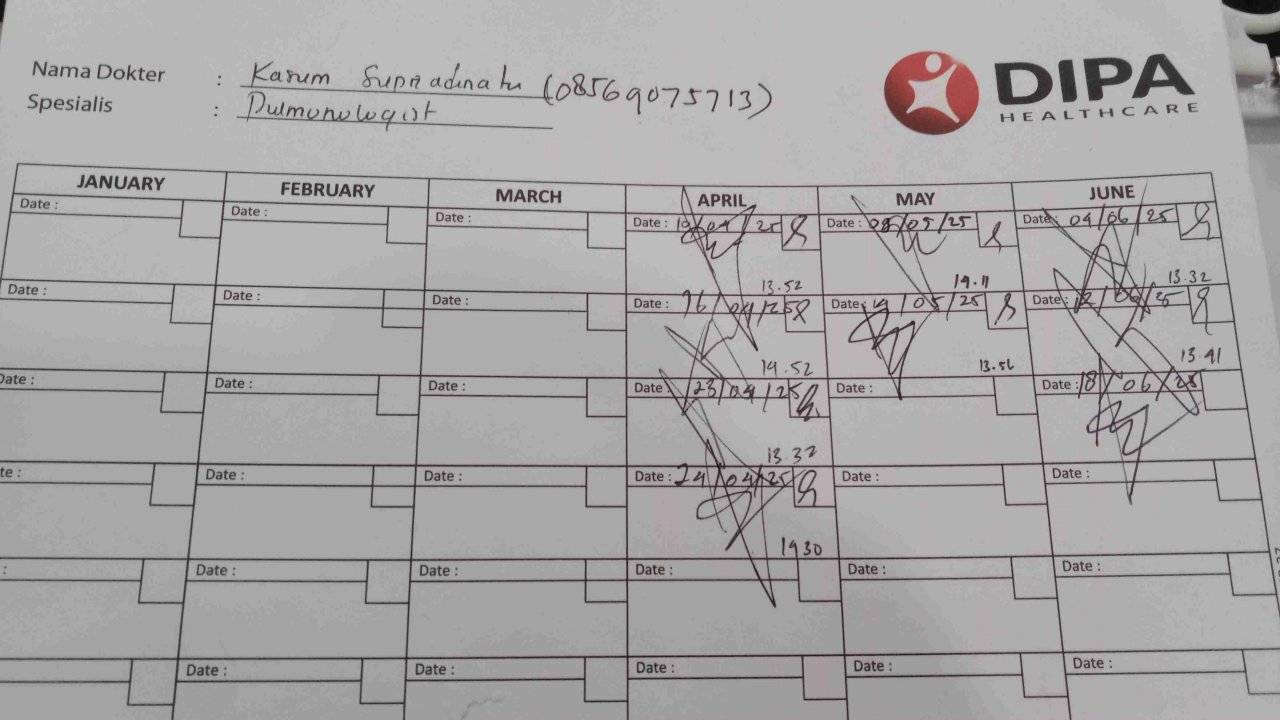 Nama Dokter : Karum Supriadinata (08569075713)
Spesialis : Pulmonologist
DIPA
HEALTHCARE
JANUARY FEBRUARY MARCH APRIL MAY JUNE
Date : Date : Date : Date : 10/04/25 Date : 08/05/25 Date : 04/06/25
13.52 14.11 13.32
Date : Date : Date : Date : 16/04/25 Date : 14/05/25 Date : 12/06/25
14.52 13.56 13.41
Date : Date : Date : Date : 23/04/25 Date : Date : 18/06/25
13.32
Date : Date : Date : 24/04/25 Date : Date :
1430
: Date : Date : Date : Date : Date :
Date : Date : Date : Date : Date :